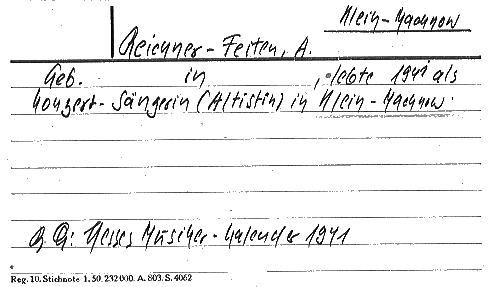 Klein-Machnow
Reichner-Feiten, A.
Geb. in , lebte 1941 als
Konzert-Sängerin (Altistin) in Klein-Machnow.
Hesses Musiker-Kalender 1941
Reg. 10. Stichnote 1. 50. 232000. A. 803. S. 4062